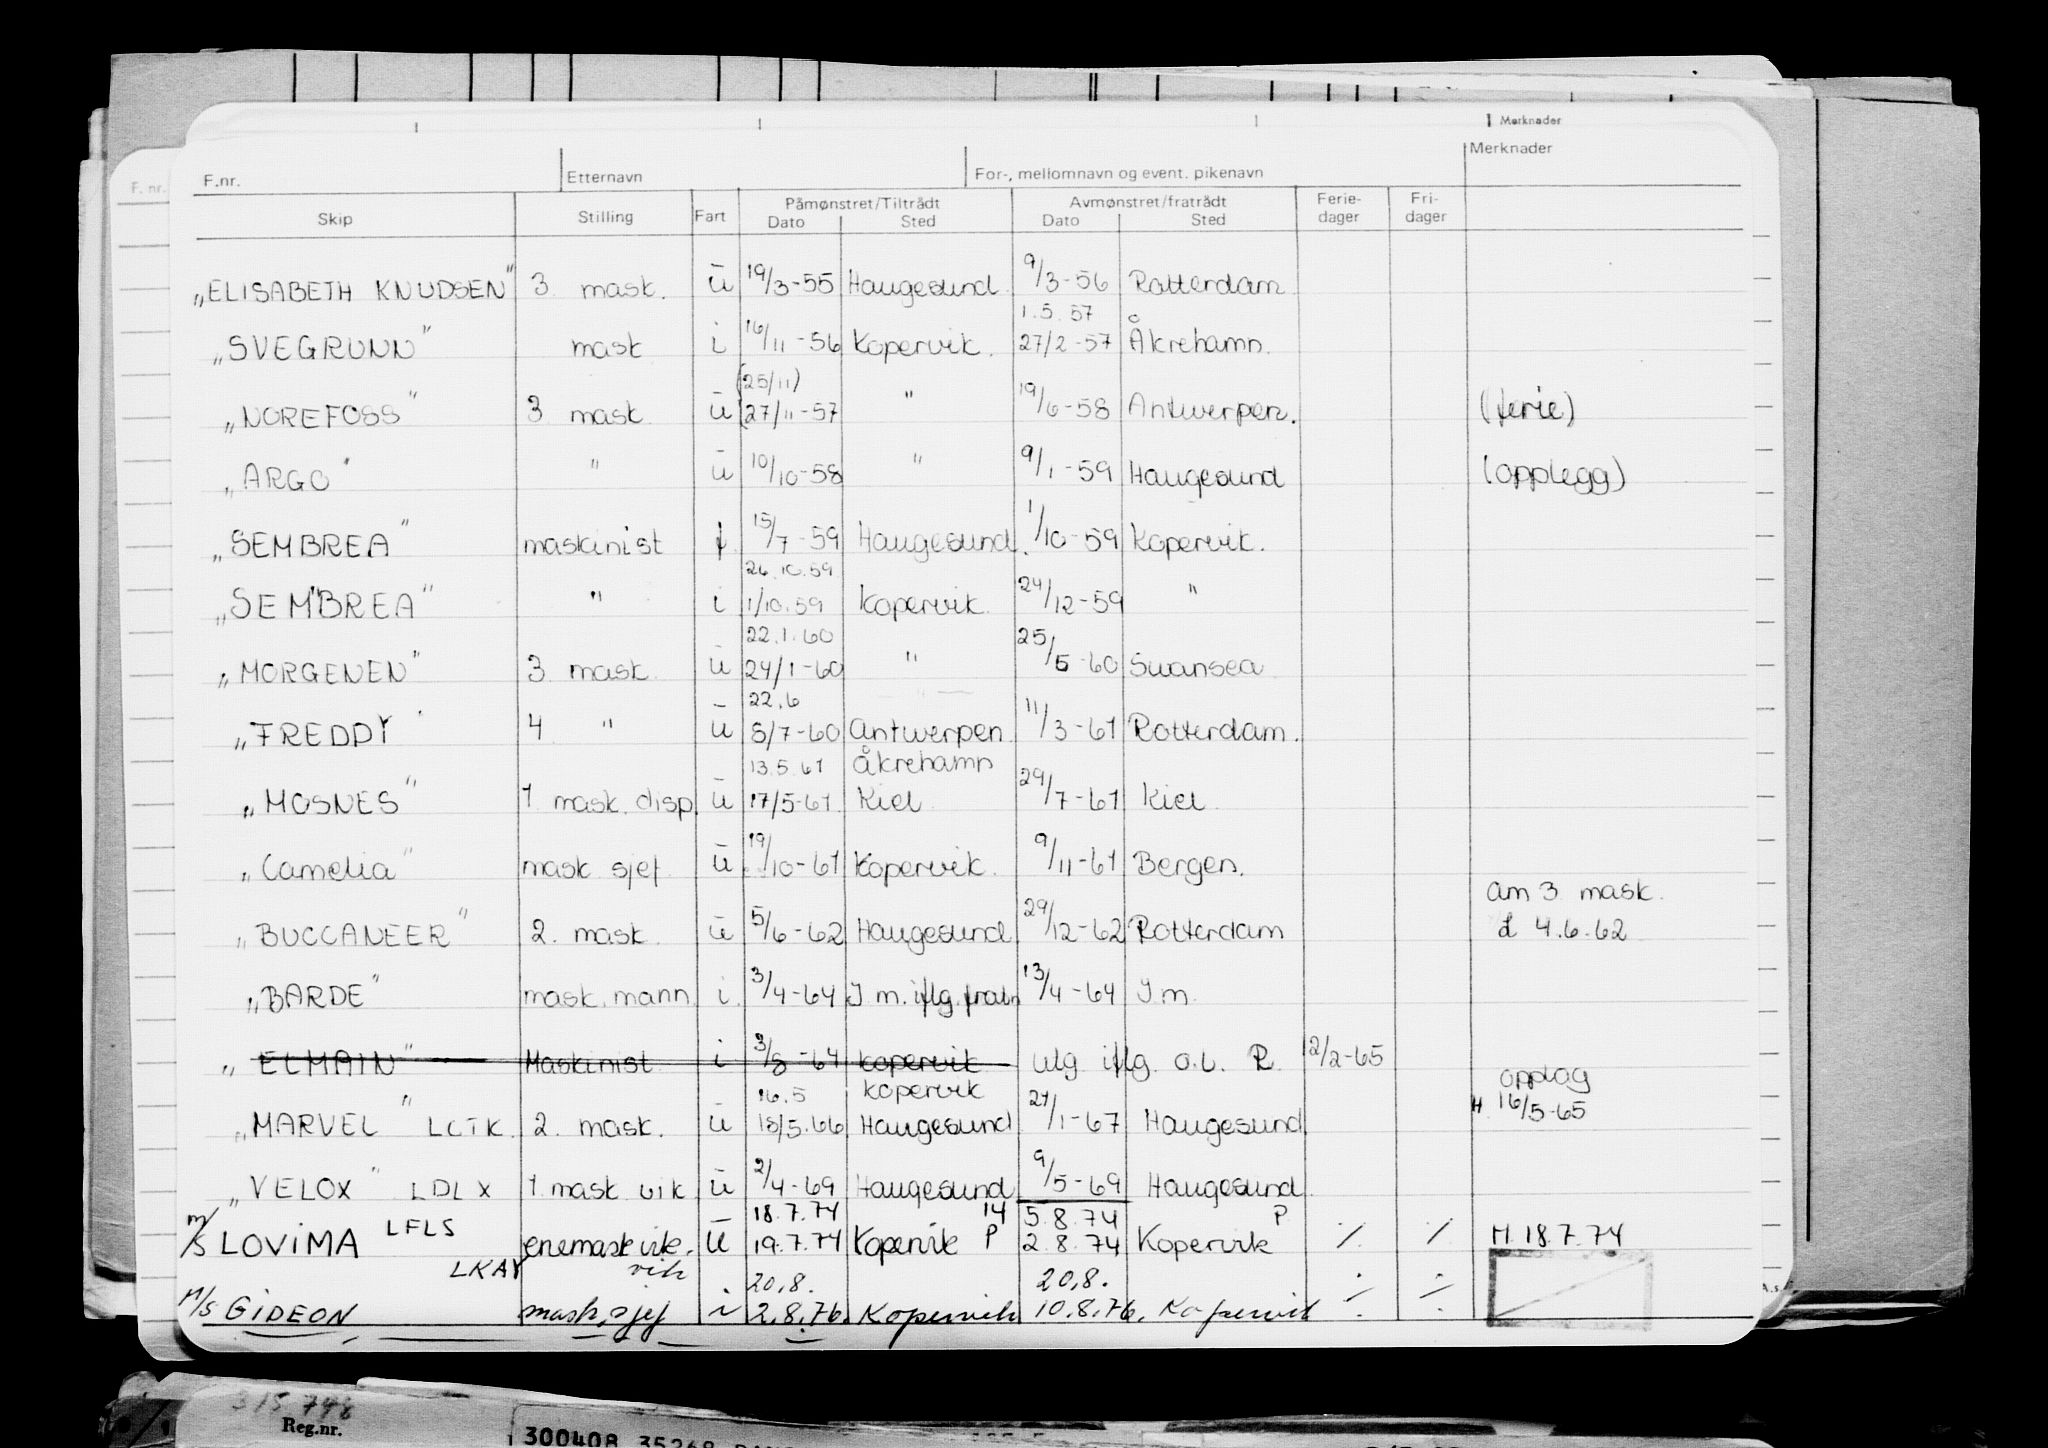 Merknader
F.nr. Etternavn For-, mellomnavn og event. pikenavn Merknader
F. nr.
Skip Stilling Fart Påmønstret/Tiltrådt Avmønstret/fratrådt Ferie-dager Fri-dager
Dato Sted Dato Sted
„ELISABETH KNUDSEN" 3 mask. ū 19/3-55 Haugesund 9/3-56 Rotterdam
1.5.57
„SVEGRUNN" mask i 16/11-56 Kopervik. 27/2-57 Åkrehamn.
(25/11)
„NOREFOSS" 3 mask ū 27/11-57 " 19/6-58 Antwerpen. (ferie)
„ARGO" " ū 10/10-58 " 9/1-59 Haugesund (opplegg)
„SEMBREA" maskinist f 15/7-59 Haugesund. 1/10-59 Kopervik.
26.10.59
„SEMBREA" " i 1/10.59 Kopervik. 24/12-59 "
22.1.60
„MORGENEN" 3 mask. ū 24/1-60 " 25/5-60 Swansea
22.6
„FREDDY" 4 " ū 8/7-60 Antwerpen 11/3-61 Rotterdam.
13.5.61 Åkrehamn
„MOSNES" 1 mask. disp ū 17/5-61. Kiel 29/7-61 Kiel
„Camelia" mask sjef ū 19/10-61 Kopervik. 9/11-61 Bergen.
am 3 mask.
„BUCCANEER" 2. mask. ū 5/6-62 Haugesund 29/12-62 Rotterdam 4.6.62
„BARDE" mask. mann i. 3/4-64 I m. iflg. 13/4-64 I m.
„ELMAIN" Maskinist i 3/8-64 Kopervik ulg iflg. o.b. R. 2/2-65
opplag
16.5 Kopervik H. 16/5-65
„MARVEL" LCTK. 2. mask. ū 18/5.66 Haugesund 21/1-67 Haugesund
„VELOX" LDLX 1. mask vik ū 2/4-69 Haugesund 9/5-69 Haugesund
18.7.74 14 5.8.74 P
m/s LOVIMA LFLS enemask vik. ū 19.7.74 Kopervik P 2.8.74 Kopervik % % H. 18.7.74
LKAY vik 20,8. 20,8.
M/S GIDEON mask, sjef i 2.8.76. Kopervik 10.8.76. Kopervik
A.s
315.748
Reg.nr.
300408 35268